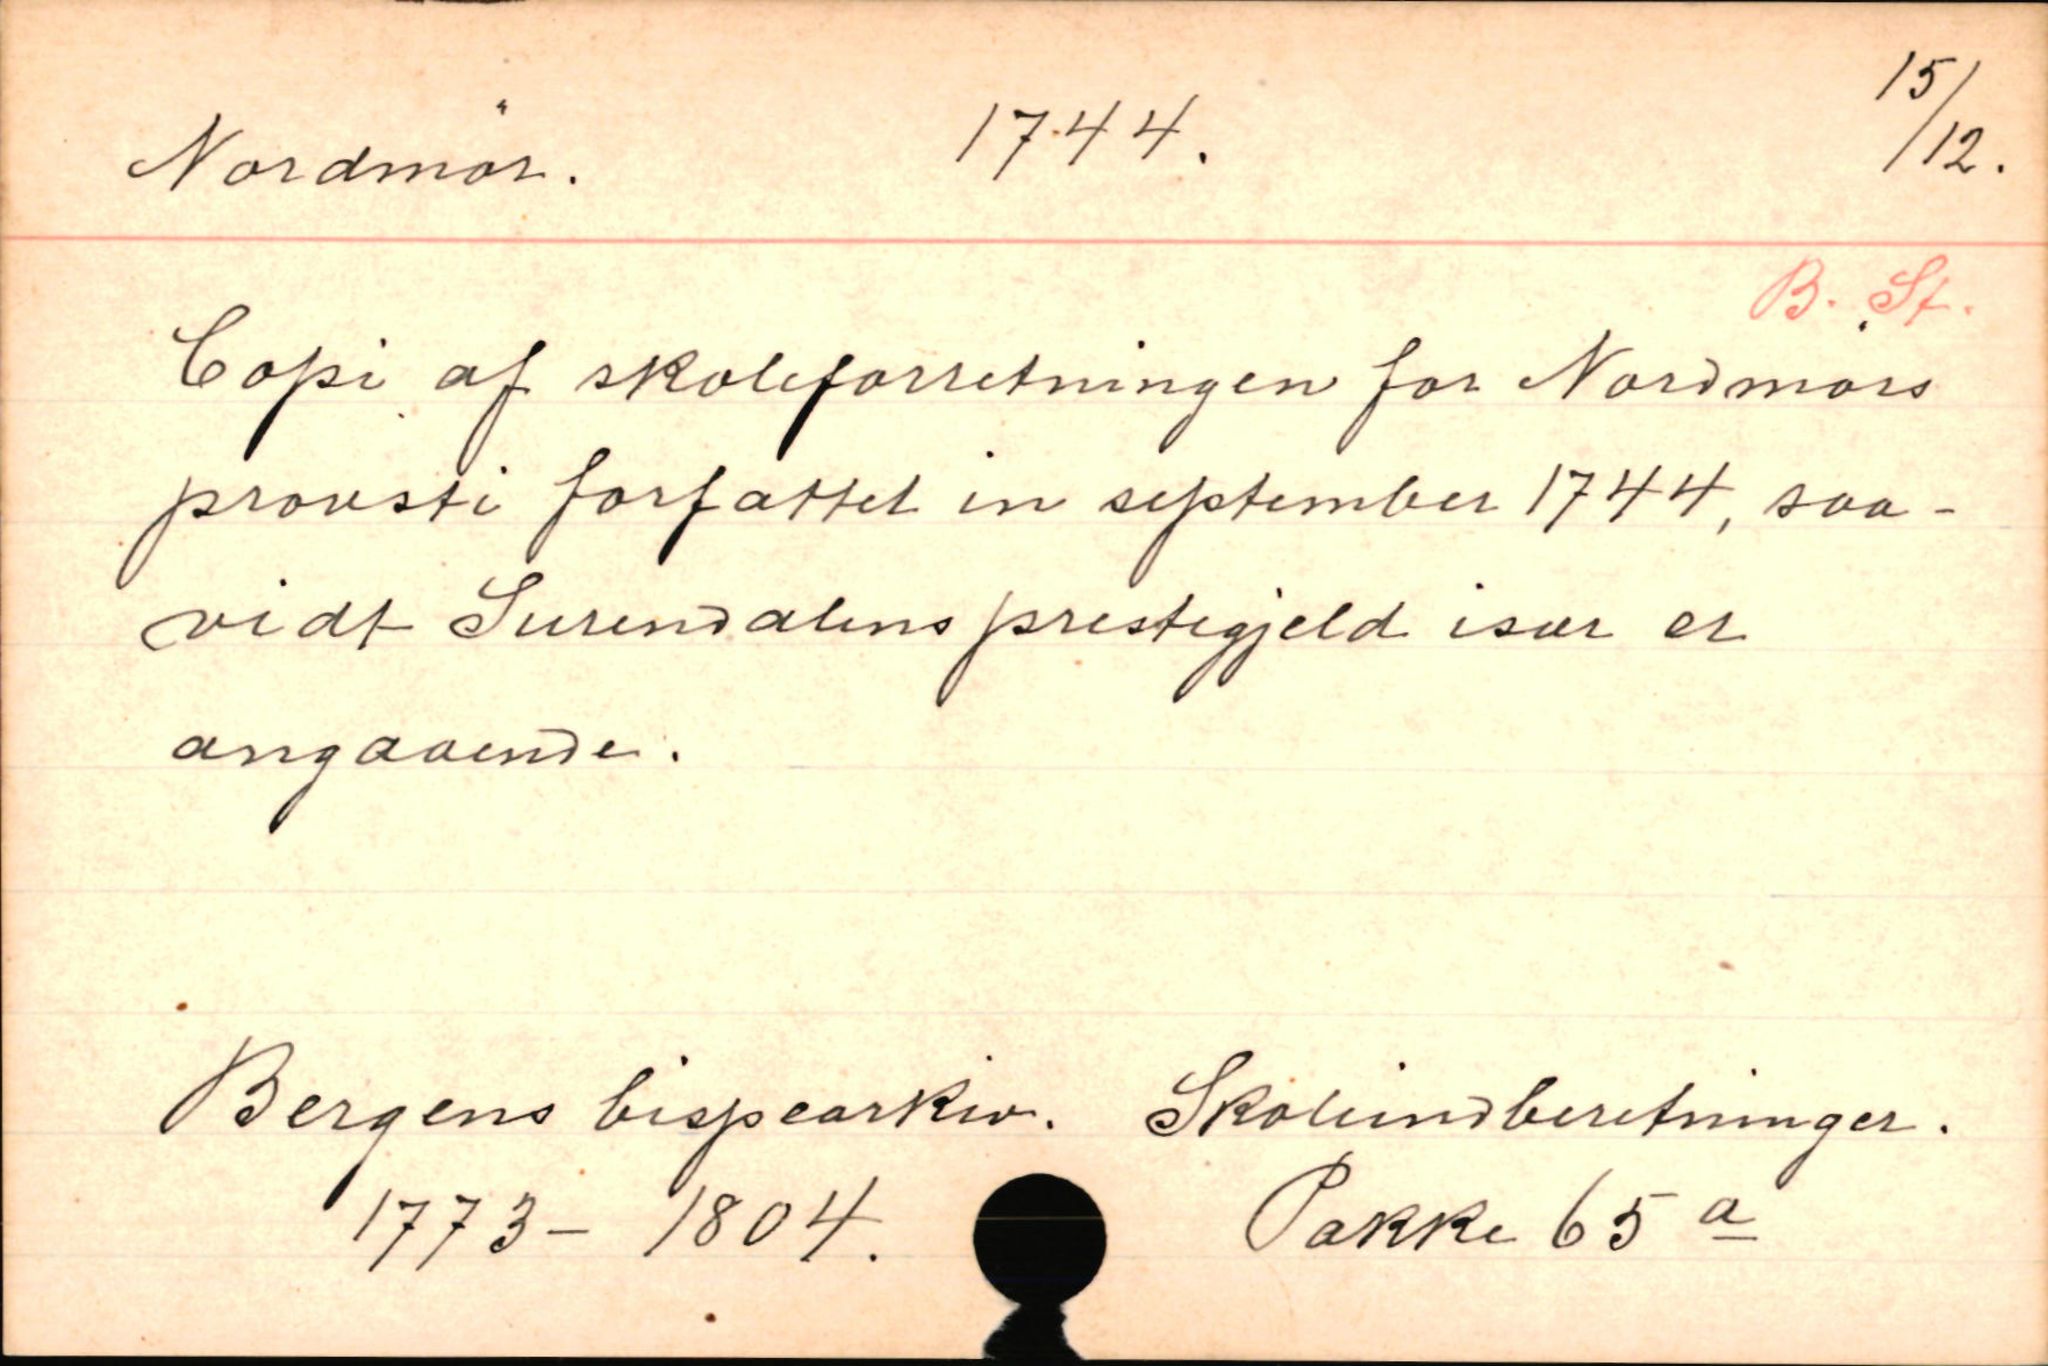 Nordmör. 1744. 15/12.
B. St.
Copi af skoleforretningen for Nordmørs
provsti forfattet in september 1744, saa-
vidt Surendalens prestegjeld især er
angaaende.
Bergens bispearkiv. Skoleindberetninger.
1773-1804. Pakke 65 a